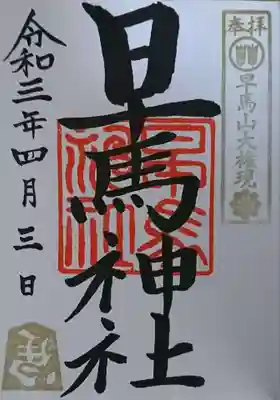 奉拝
早馬山大権現
早馬神社
令和三年四月三日